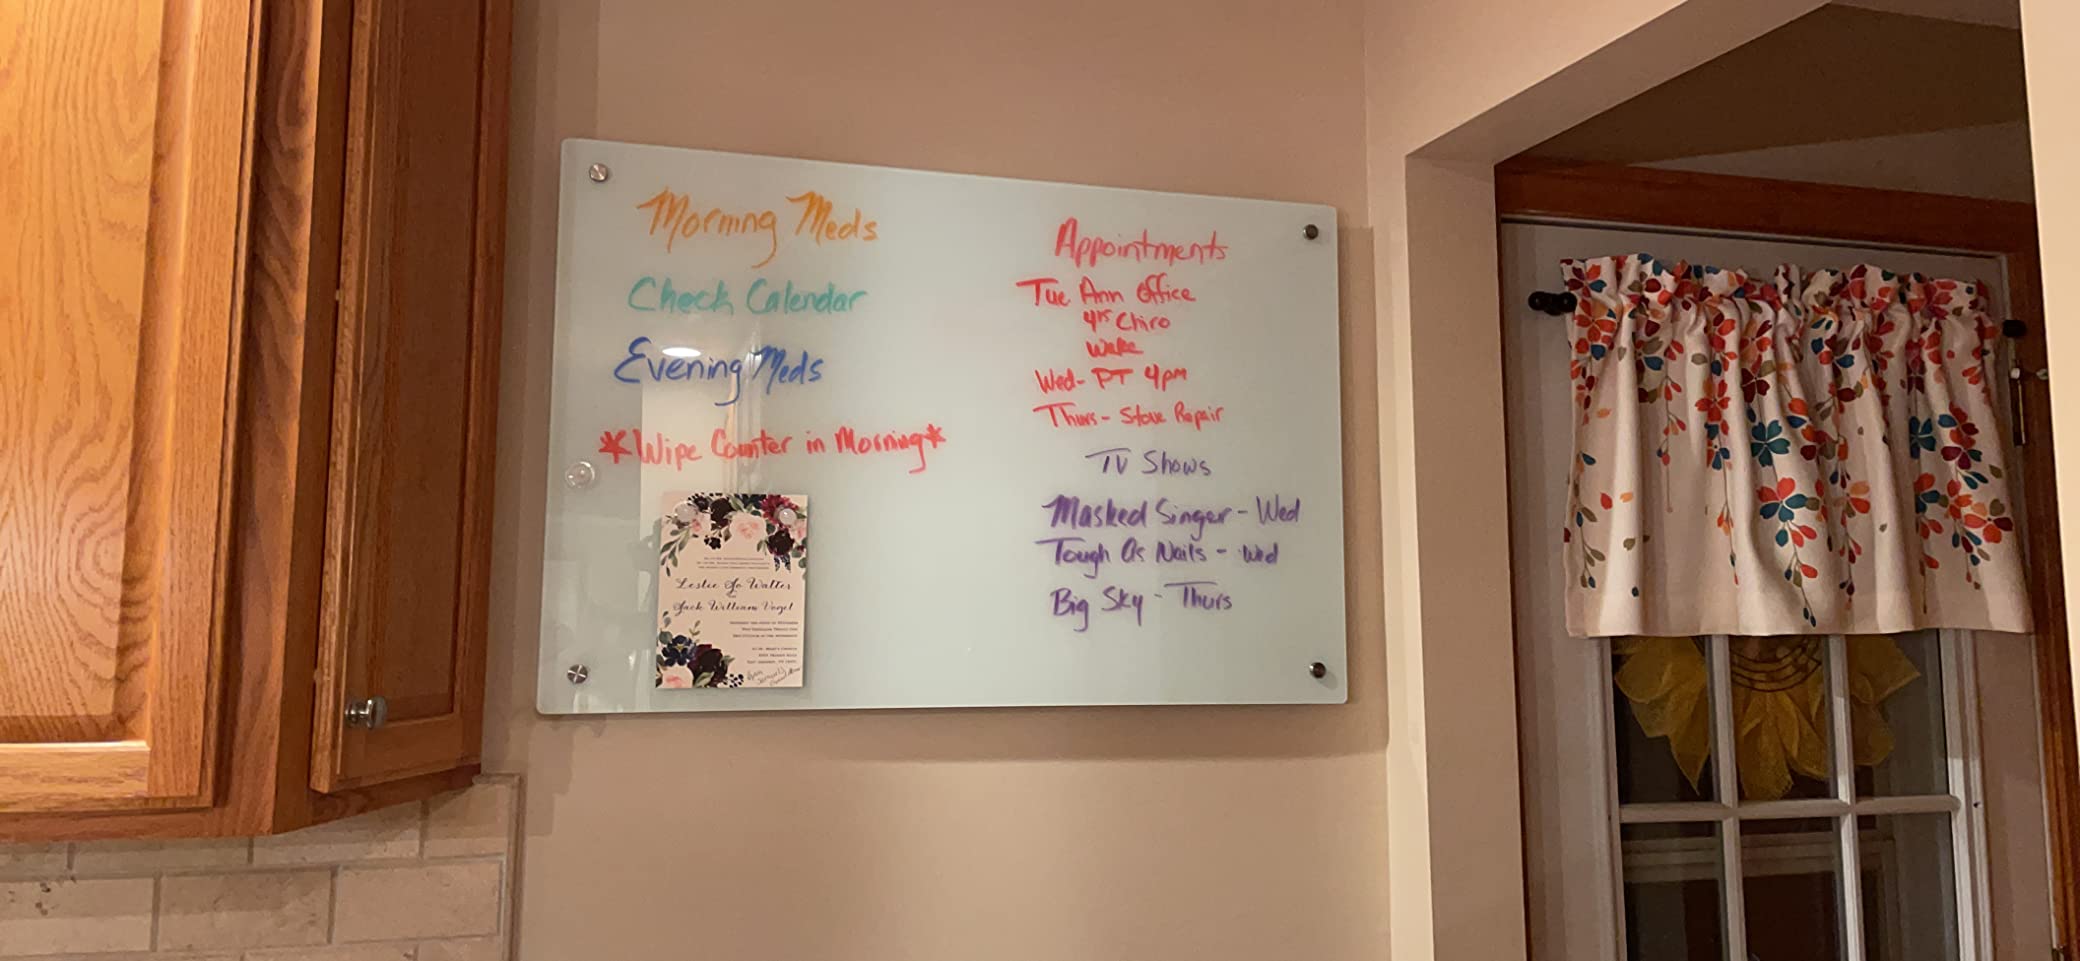 Morning Meds
Check Calendar
Evening Meds
*Wipe Counter in Morning*
Leslie Jo Walter
Jack William Vogel
Appointments
Tue Ann Office
Chiro
Wake
Wed- PT 4pm
Thurs- Stove Repair
TV Shows
Masked Singer - Wed
Tough As Nails - Wed
Big Sky - Thurs